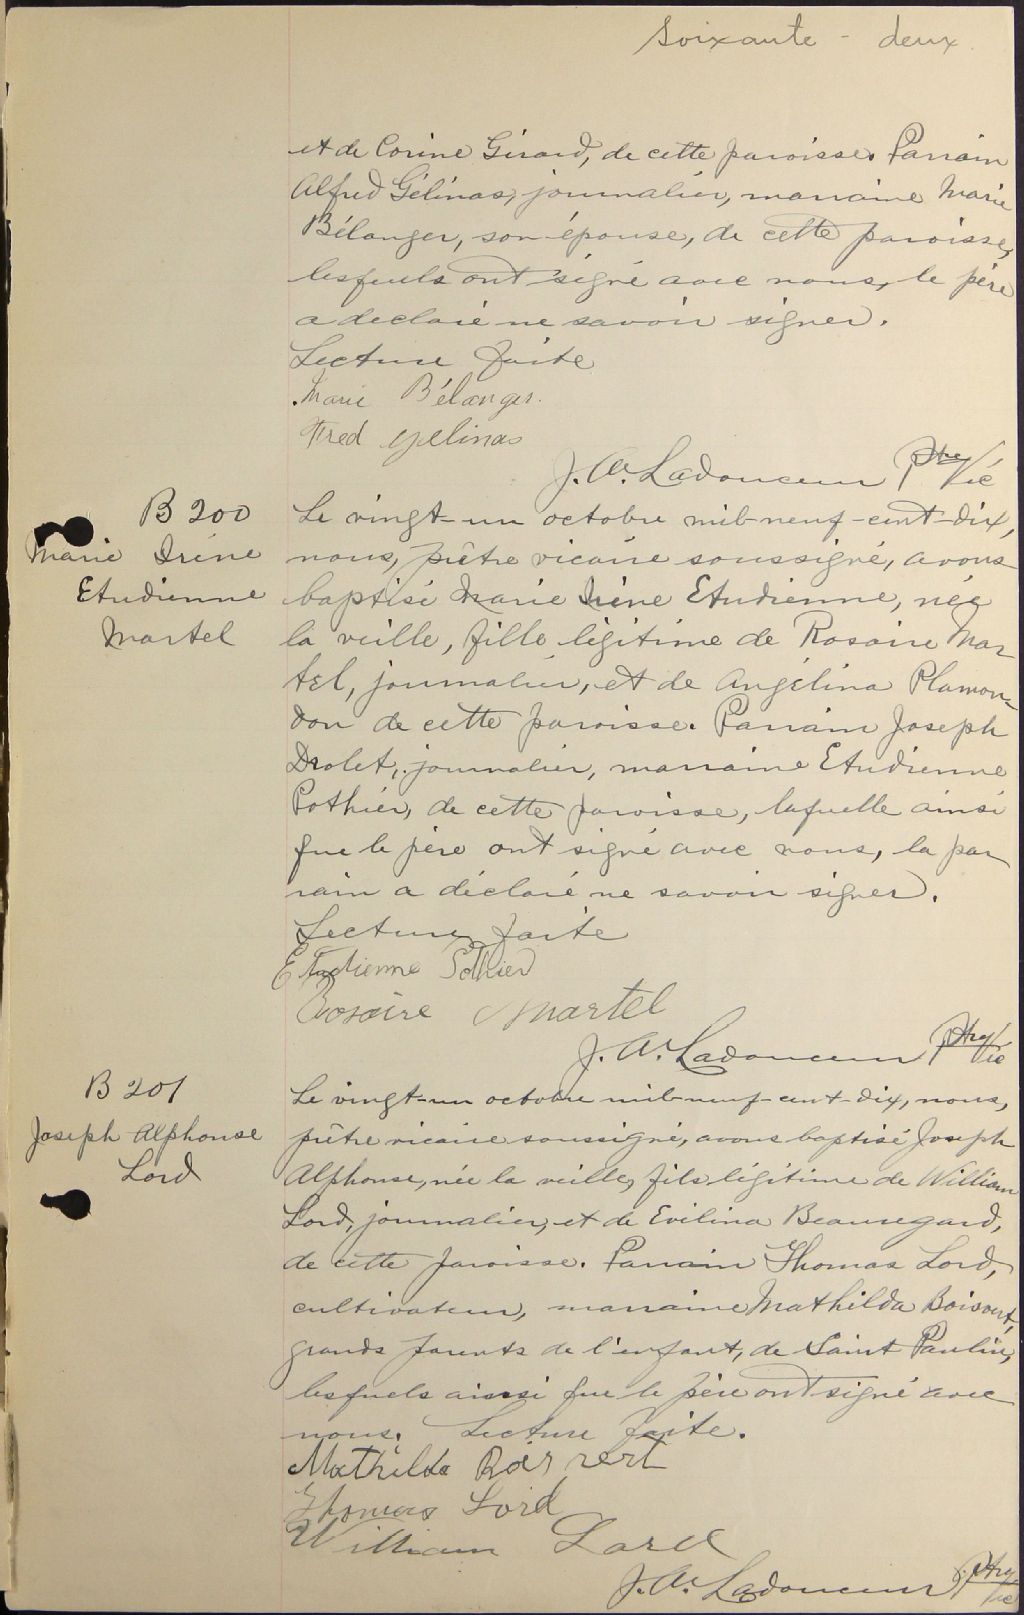 Soixante - deux
et de Corine Girard, de cette paroisse. Parrain
Alfred Gélinas, journalier, marraine Marie
Bélanger, son épouse, de cette paroisse,
lesquels ont signé avec nous, le père
a déclaré ne savoir signer.
Lecture faite
Marie Bélanger.
Fred Gelinas
J. A. Ladouceur Ptre Vic
B 200
Marie Irène
Etudienne
Martel
Le vingt-un octobre mil-neuf-cent-dix,
nous, prêtre vicaire soussigné, avons
baptisé Marie Irène Etudienne, née
la veille, fille légitime de Rosaire Mar
tel, journalier, et de Angélina Plamon-
don de cette paroisse. Parrain Joseph
Drolet, journalier, marraine Etudienne
Pothier, de cette paroisse, laquelle ainsi
que le père ont signé avec nous, la par
rain a déclaré ne savoir signer.
Lecture faite
Etudienne Pothier
Rosaire Martel
J. A. Ladouceur Ptre Vic
B 201
Joseph Alphonse
Lord
Le vingt-un octobre mil-neuf-cent-dix, nous,
prêtre vicaire soussigné, avons baptisé Joseph
Alphonse, née la veille, fils légitime de William
Lord, journalier, et de Evilina Beauregard,
de cette paroisse. Parrain Thomas Lord,
cultivateur, marraine Mathilda Boisvert,
grands parents de l'enfant, de Saint Paulin,
lesquels ainsi que le père ont signé avec
nous. Lecture faite.
Mathilda Boisvert
Thomas Lord
William Lord
J. A. Ladouceur Ptre Vic